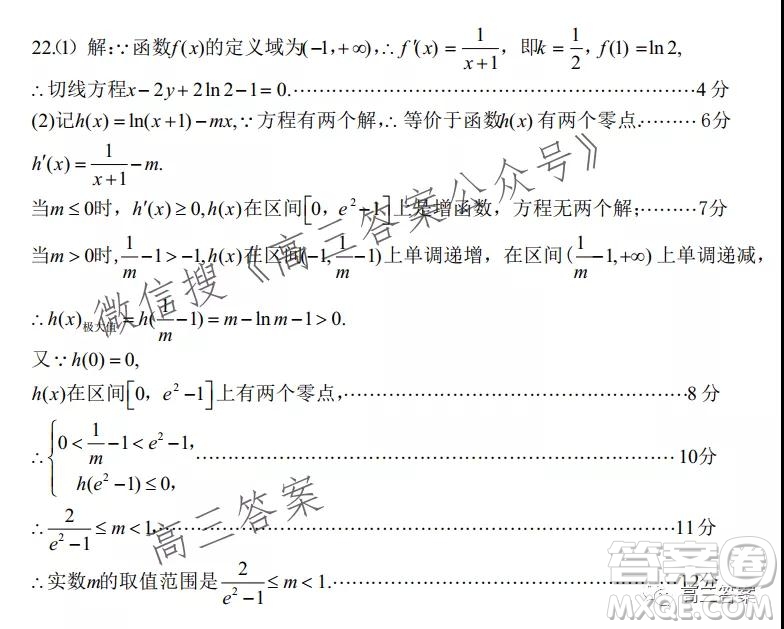 22.(1) 解:∵函数f(x)的定义域为(-1,+∞),∴f′(x)=1/(x+1), 即k=1/2, f(1)=ln2,
∴切线方程x-2y+2ln2-1=0.……………………………………………4分
(2)记h(x)=ln(x+1)-mx,∵方程有两个解,∴等价于函数h(x)有两个零点.………6分
h′(x)=1/(x+1)-m.
当m≤0时, h′(x)≥0,h(x)在区间[0, e²-1]上是增函数, 方程无两个解;………7分
当m>0时, 1/m-1>-1,h(x)在区间(-1,1/m-1)上单调递增, 在区间(1/m-1,+∞)上单调递减,
∴h(x)极大值=h(1/m-1)=m-lnm-1>0.
又∵h(0)=0,
h(x)在区间[0, e²-1]上有两个零点,……………………………………8分
∴{0<1/m-1<e²-1, h(e²-1)≤0,……………………………………10分
∴2/(e²-1)≤m<1,……………………………………11分
∴实数m的取值范围是2/(e²-1)≤m<1.……………………………………12分
微信搜《高三答案公众号》
高三答案
高三答案
答案圈
MXQE.COM